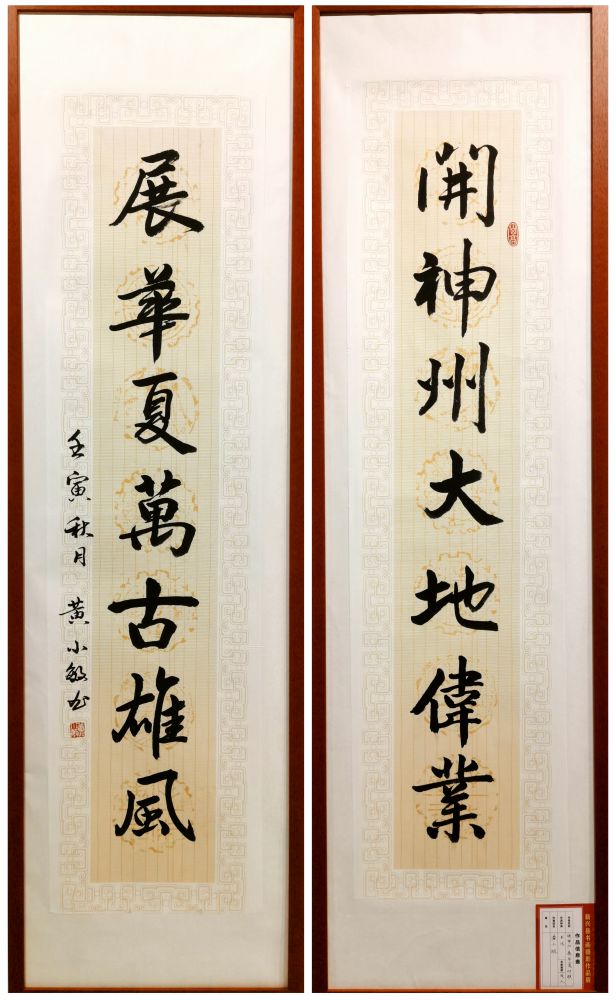 開神州大地偉業
展華夏萬古雄風
壬寅秋月 黄小敏书
作品信息表